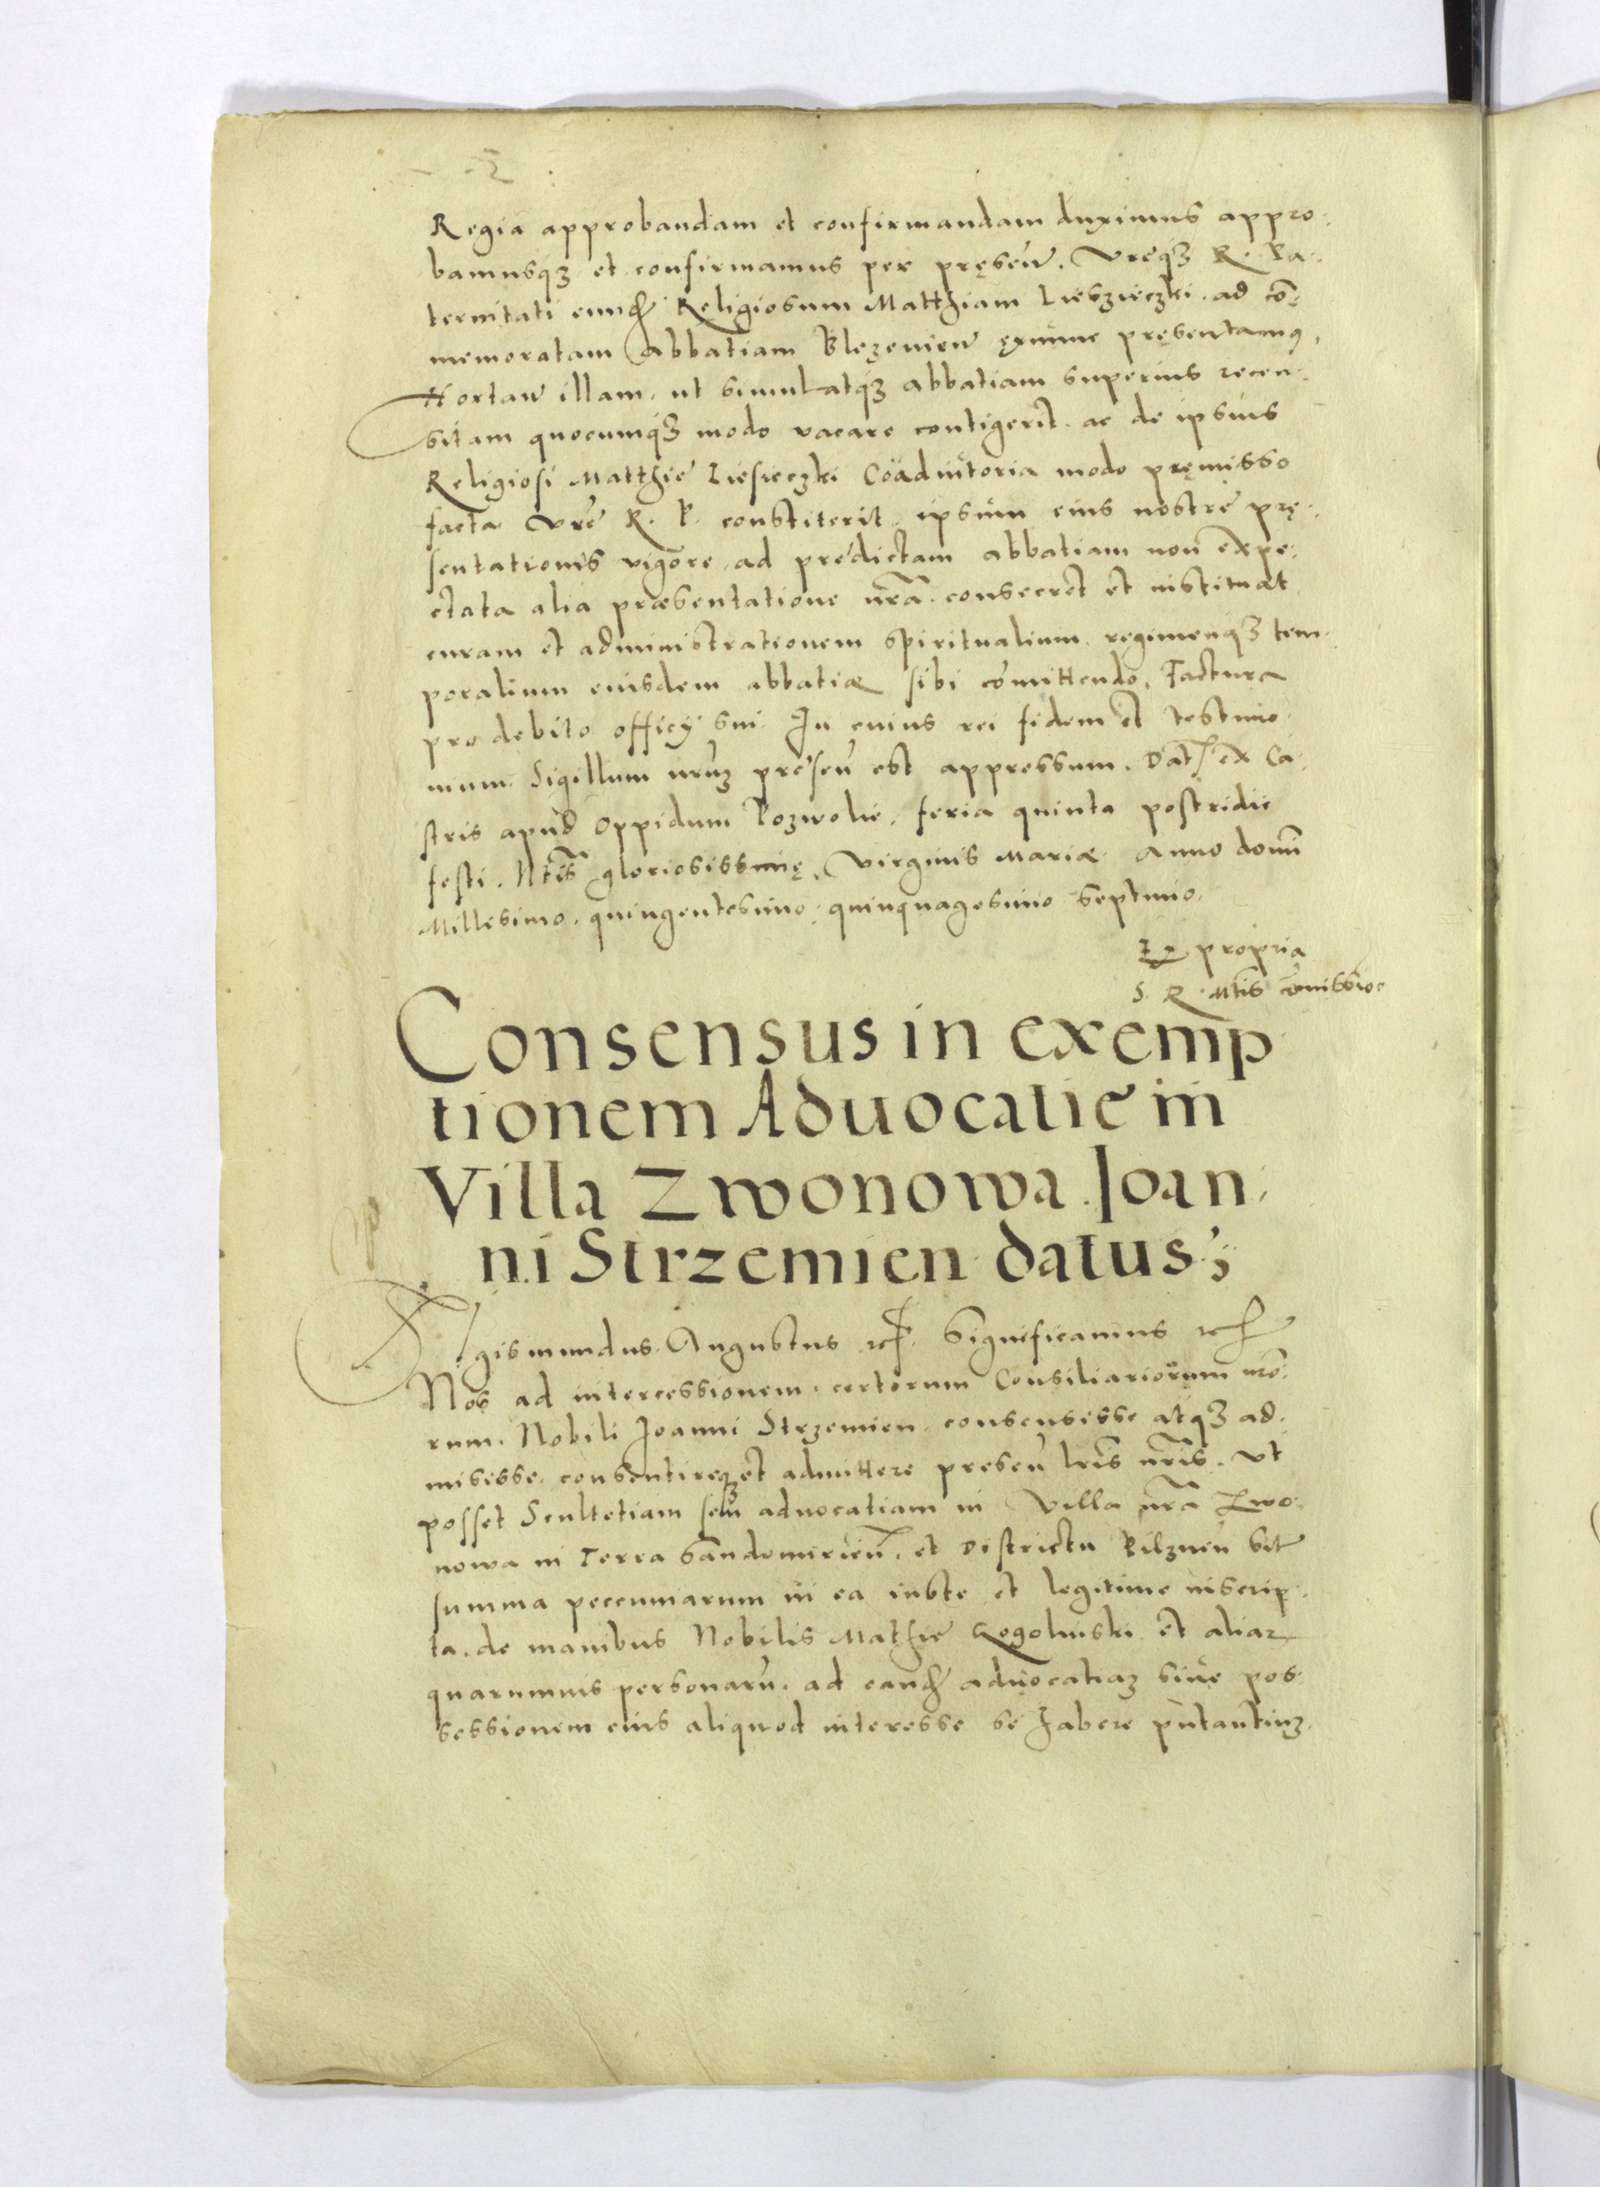 Regia approbandam et confirmandam duximus appro-
bamusqȝ et confirmamus per pręsen̄. Vr̄eqȝ R. Pa-
ternitati eund Religiosum Matthiam Lieszieczki ad co͂-
memoratam abbatiam Blęzenien̄ pręsentamus,
Hortan̄ illam, ut simulatqȝ abbatiam superius recen-
sitam quocumqȝ modo vacare contigerit. ac de ipsius
Religiosi Matthie Liesieczki Coadiutoria modo pręmisso
facta Vr̄e R. P. constiterit, ipsum eius nostre prę-
sentationis vigore, ad predictam abbatiam non expe-
ctata alia præsentatione nr̄a consecret et instituat
curam et administrationem spiritualium, regimenqȝ tem-
poralium eiusdem abbatiæ sibi co͂mittendo. Factura
pro debito officÿ sui. In cuius rei fidem et testimo-
nium Sigillum nr̄uȝ presen̄ est appressum. Dat ex Ca-
stris apud Oppidum Pozwolie, feria quinta postridie
festi. Nt̄is gloriosissimę, Virginis Mariæ Anno domn̄
Millesimo, quingentesimo, quinquagesimo septimo.
Ex propria
S. R. Mt̄is co͂missioe
Consensus in exemp
tionem Aduocatie in
Villa Zwonowa Joan-
ni Strzemien datus;
Sigismundus Augustus rc̄. Significamus rc̄
Nos ad intercessionem certorum Consiliariorum nr̄o-
rum. Nobili Joanni Strzemien consensisse atqȝ ad-
misisse, consentireqȝ et admittere presen̄ lr̄is nr̄is. Ut
posset Scultetiam seu aduocatiam in Villa nr̄a Zwo-
nowa in Terra Sandomirien̄. et Districtu Pilznen̄ sit
summa peccuniarum in ea iuste et legitime inscrip-
ta. de manibus Nobilis Mathie Rogolinski et aliar
quarumuis personaru͂. ad eand aduocatiaȝ siue pos-
sessionem eius aliquod interesse se habere putantiuȝ.